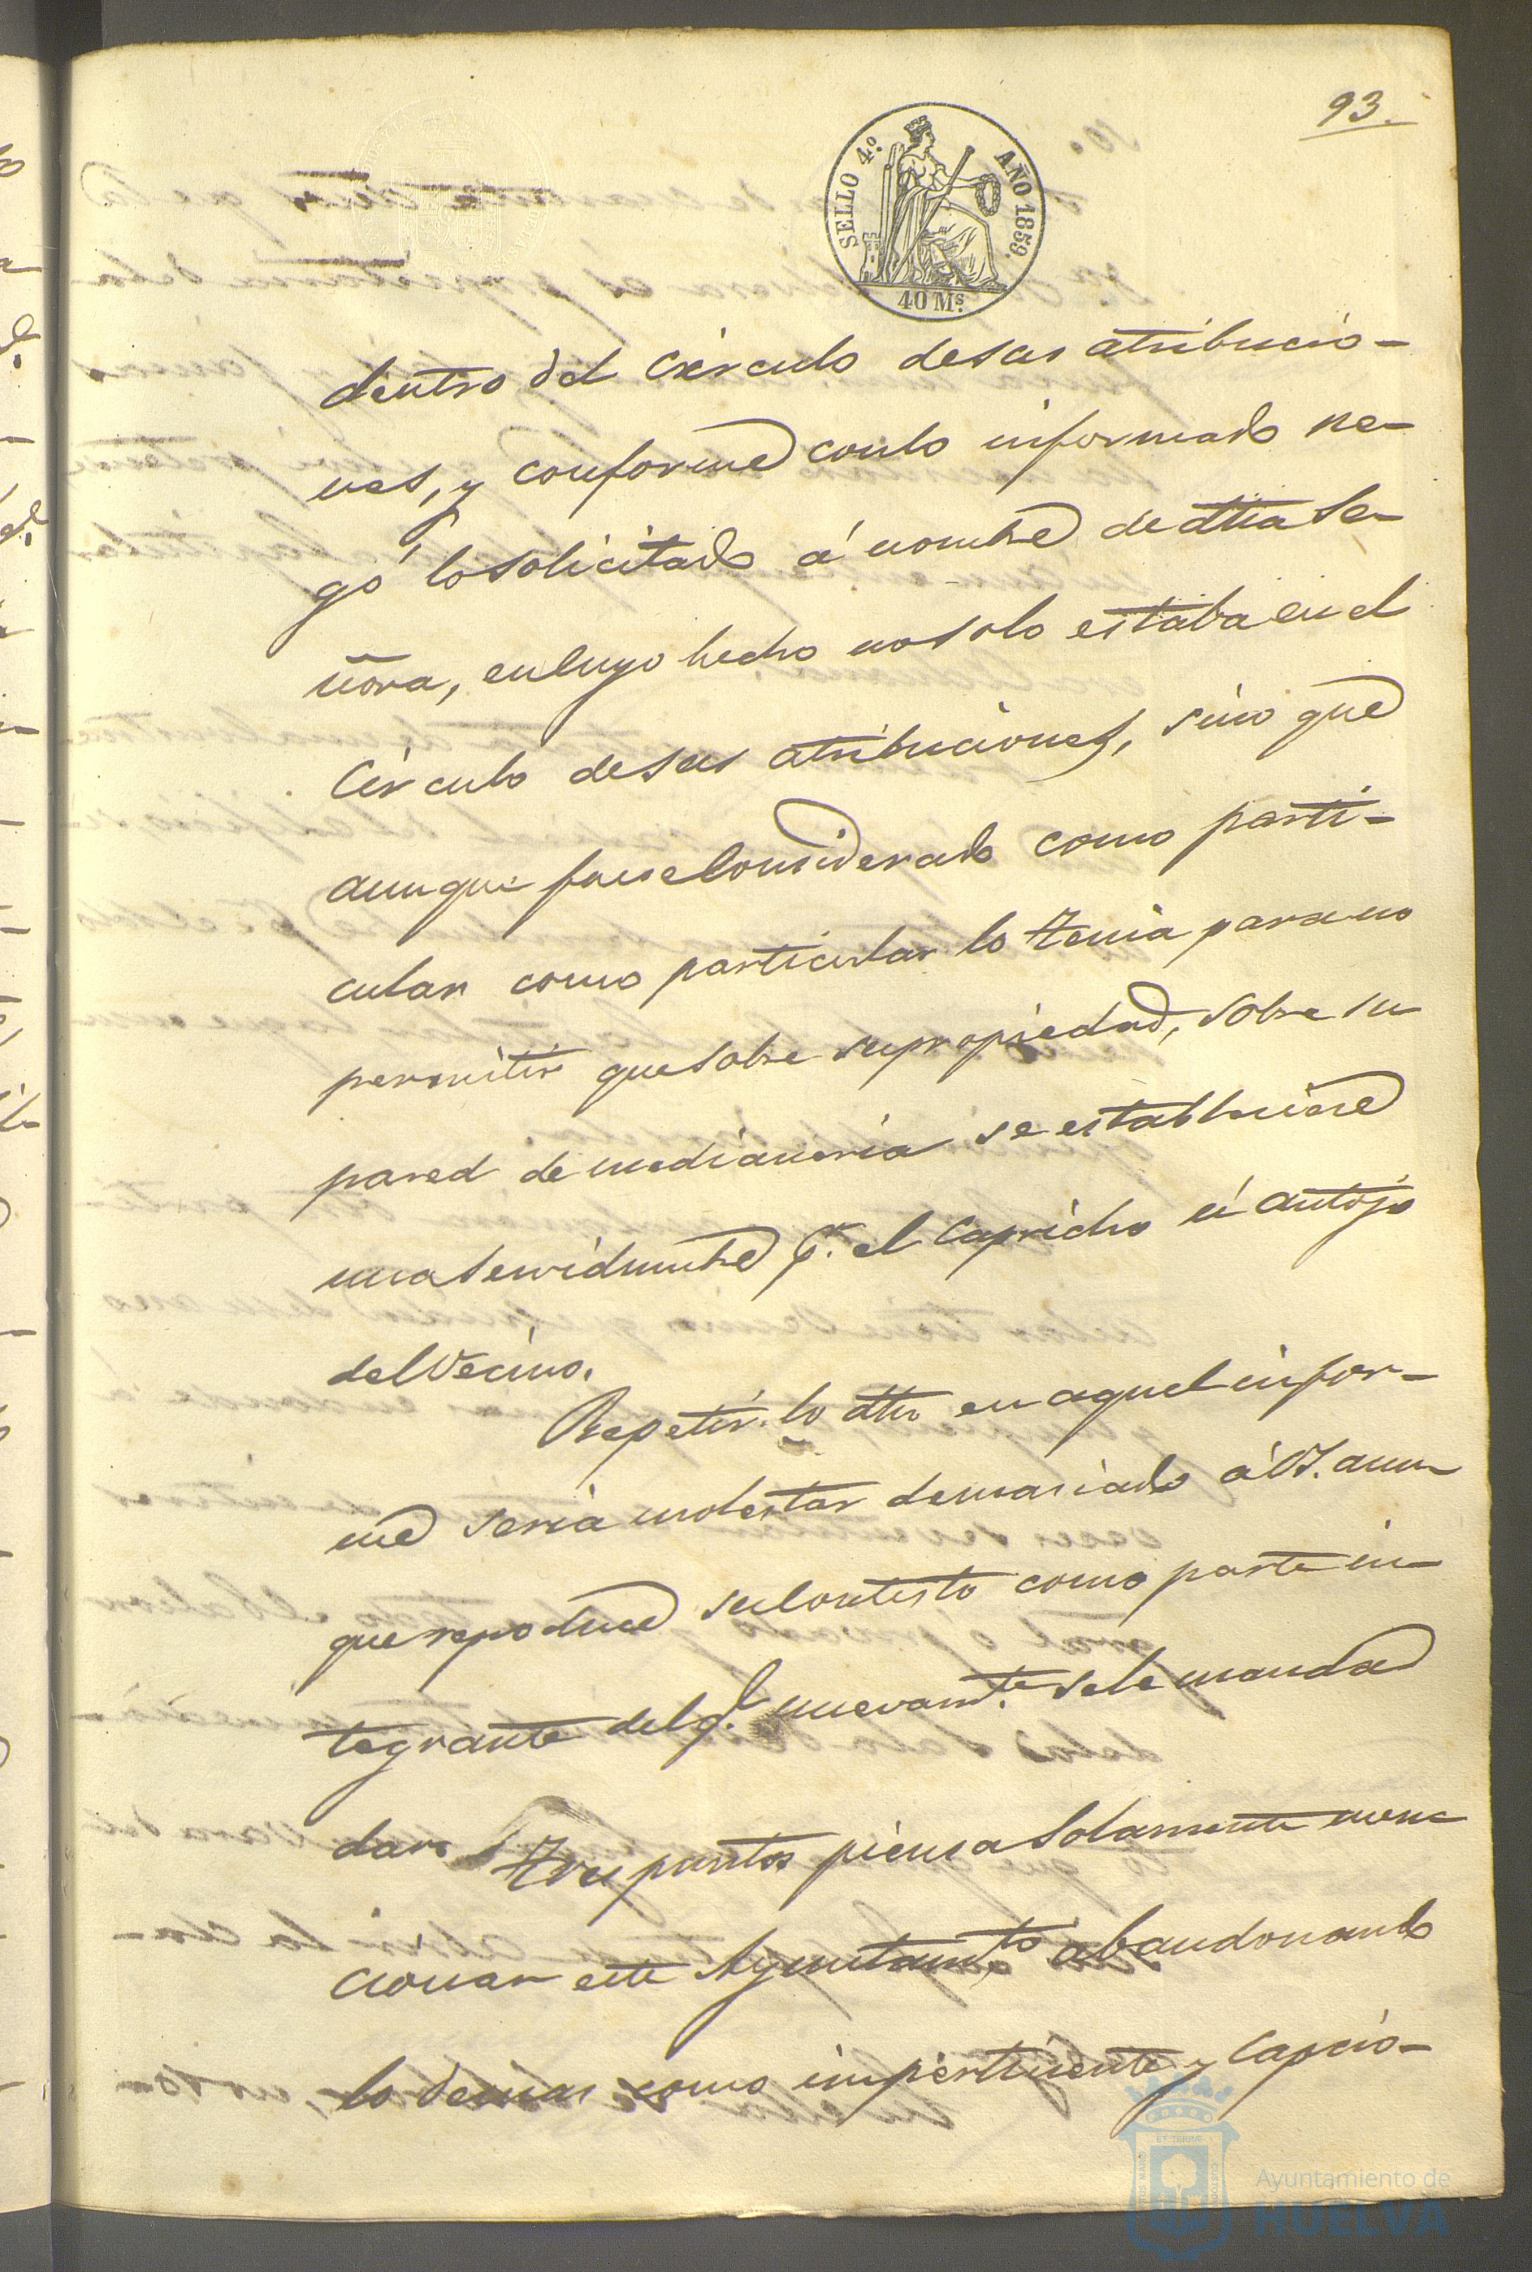 93.
SELLO 4.º AÑO 1859.
40 Ms.
dentro del círculo desus atribucio-
nes, y conforme conlo informado ne-
gó losolicitado á nombre de dha Se-
ñora, encuyo hecho nosolo estaba en el
Círculo desus atribuciones, sino que
aunque fuese Considerado como parti-
cular como particular lo tenia para no
permitir quesobre supropiedad, sobre su
pared de medianeria se estableciese
unaservidumbre pr. el Capricho ú antojo
del Vecino.
Repetir lo dho en aquel infor-
me seria molestar demasiado á VS. aun-
que reproduce sucontesto como parte in-
tegrante del qe. nuevamte. sele manda
dar. Tres puntos piensa Solamente men-
cionar este Ayuntamto. abandonando
lo demas como impertinente y Capcio-
Ayuntamiento de
HUELVA